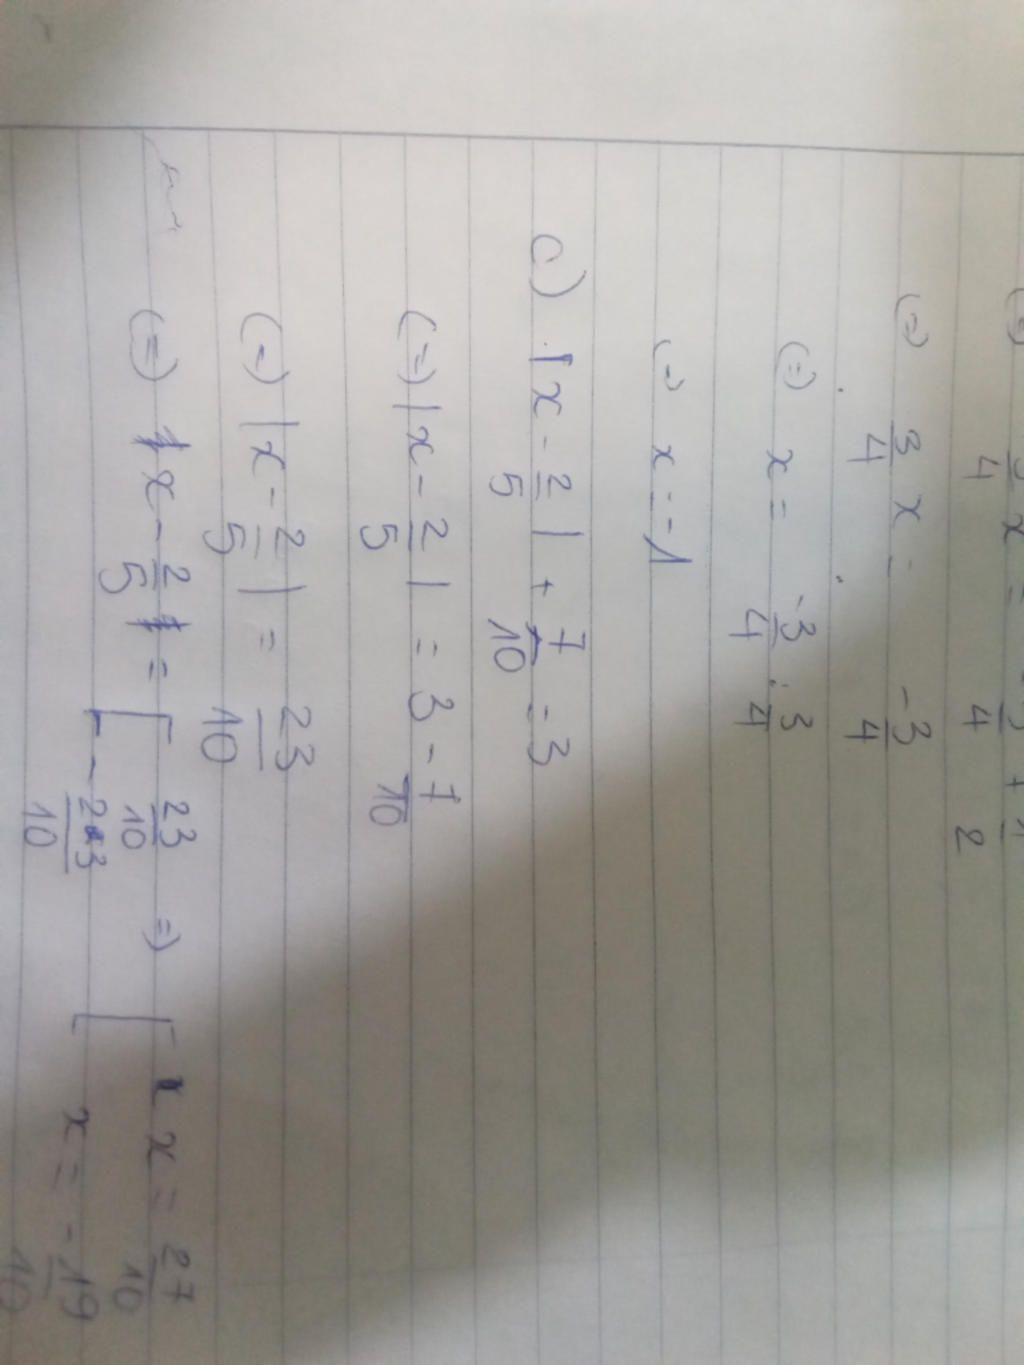 3/4 x = -3/4 + 1/2
(=) 3/4 x = -3/4
(=) x = -3/4 : 3/4
(=) x = -1
c) |x - 2/5| + 7/10 = 3
(=) |x - 2/5| = 3 - 7/10
(=) |x - 2/5| = 23/10
(=) x - 2/5 = [ 23/10 => [ x = 27/10
- 23/10 x = - 19/10